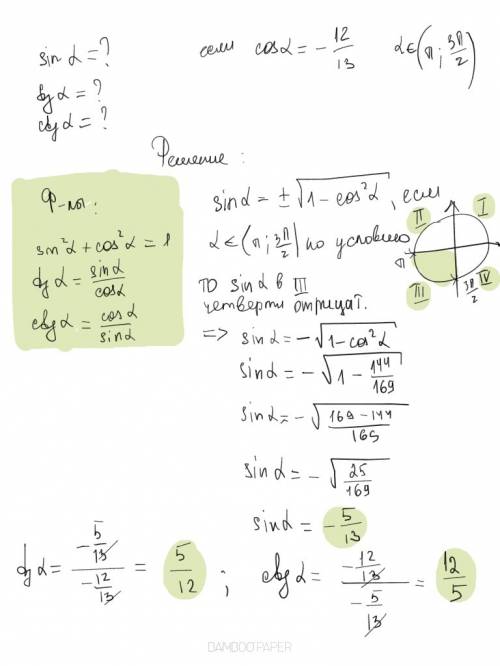 sin α = ?
если cos α = -12/13 α ∈ (π; 3π/2)
tg α = ?
ctg α = ?
Решение:
Ф-лы:
sin²α + cos²α = 1
tg α = sin α / cos α
ctg α = cos α / sin α
sin α = ± √(1 - cos²α), если
α ∈ (π; 3π/2) по условию
I
II
π
III
3π/2
IV
то sin α в III
четверти отрицат.
=> sin α = - √(1 - cos²α)
sin α = - √(1 - 144/169)
sin α = - √((169 - 144)/169)
sin α = - √(25/169)
sin α = - 5/13
tg α = (-5/13)/(-12/13) = 5/12 ; ctg α = (-12/13)/(-5/13) = 12/5
BAMBOO PAPER